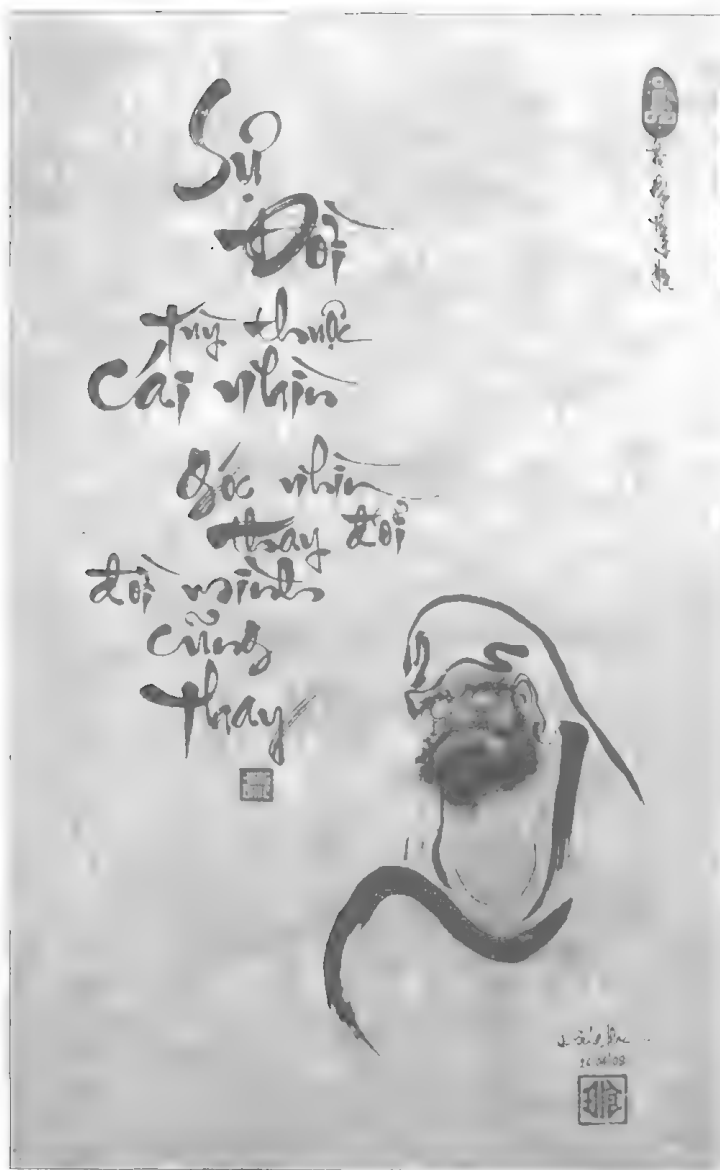 Sự
Đời
tùy thuộc
Cái nhìn
Góc nhìn
thay đổi
đời mình
cũng
thay